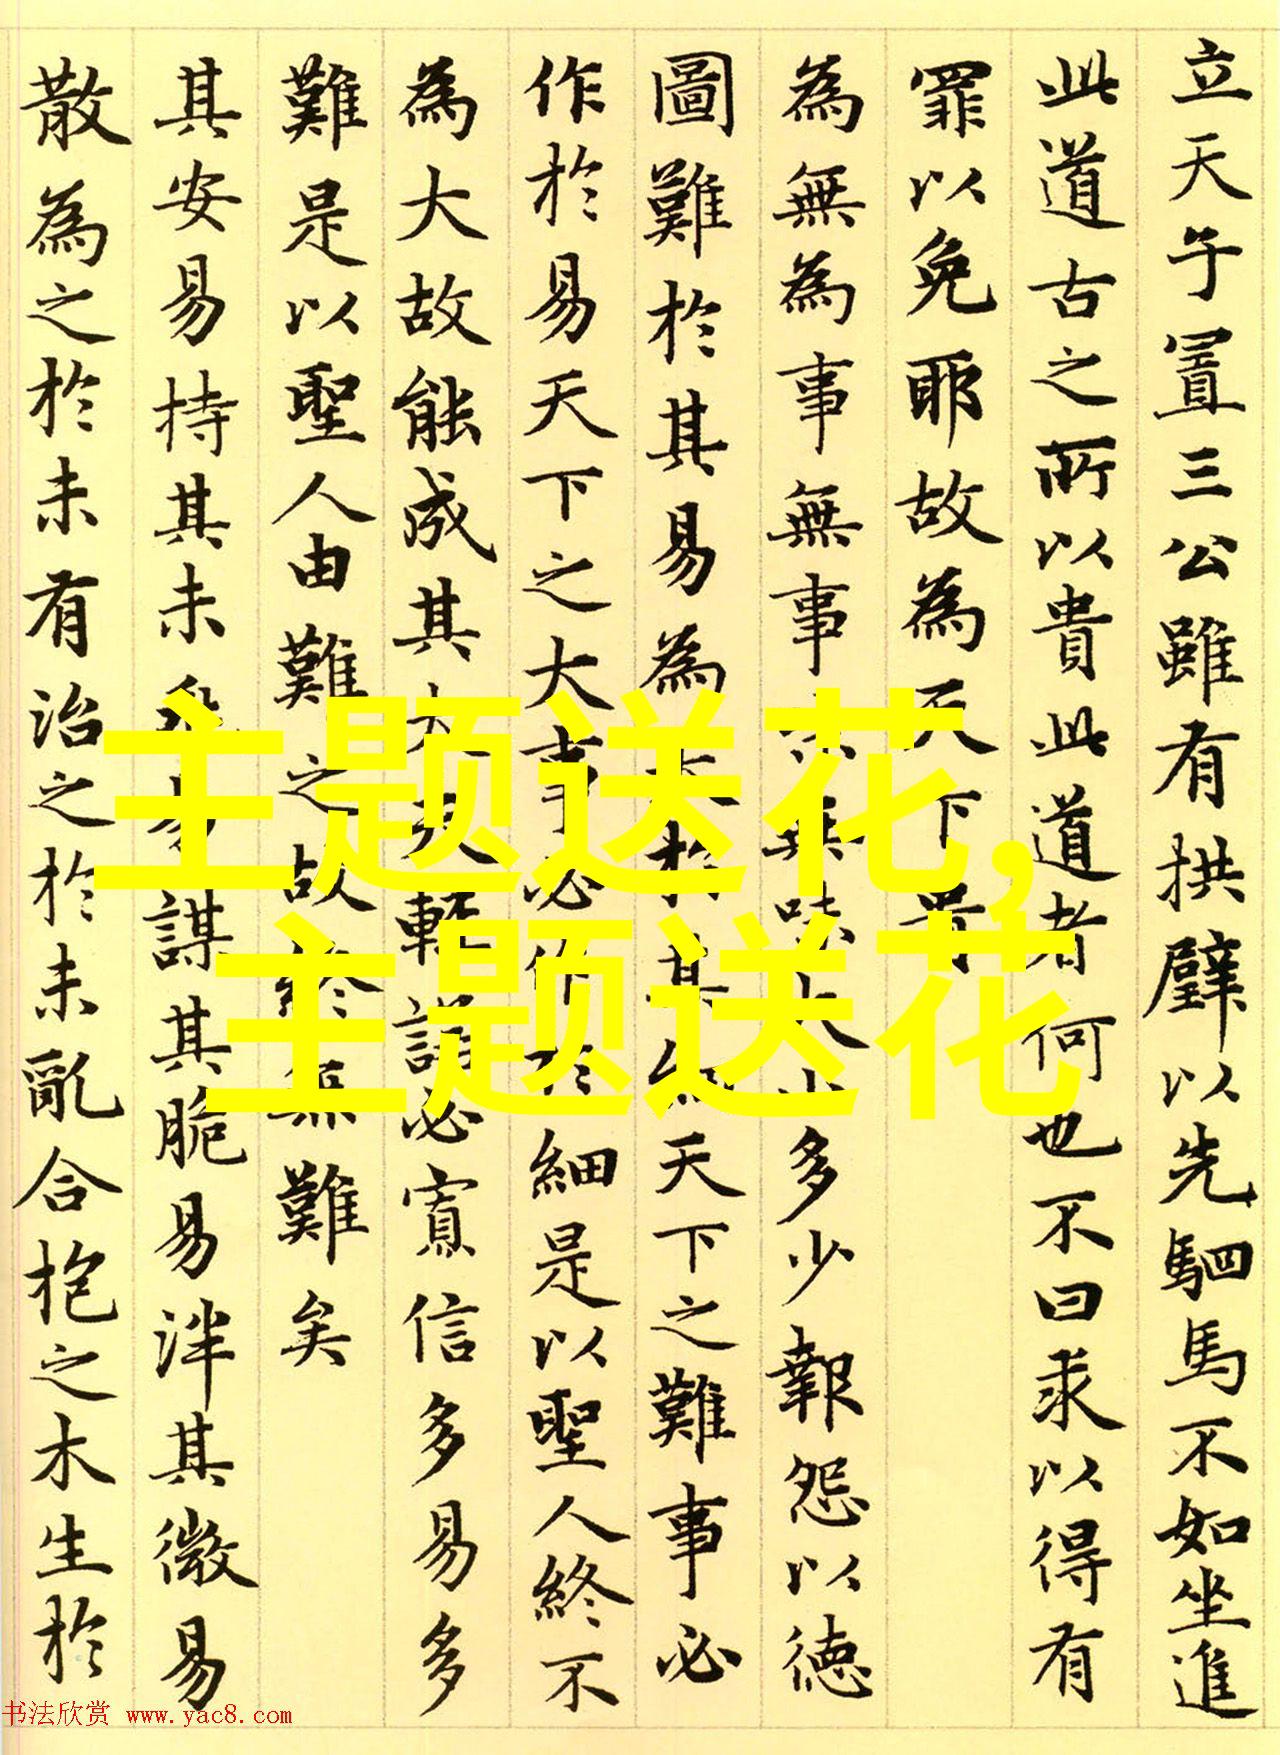 立天子置三公雖有拱璧以先駟馬不如坐進
此道古之所以貴此道者何也不曰求以得有
罪以免耶故為天下貴
為無為事無事味無味大小多少報怨以徳
圖難於其易為大於其細天下之難事必
作於易天下之大事必作於細是以聖人終不
為大故能成其大夫輕諾必寡信多易多
難是以聖人由難之故終無難矣
其安易持其未兆易謀其脆易泮其微易
散為之於未有治之於未亂合抱之木生於
主题送花,
主题送花
书法欣赏 www.yac8.com